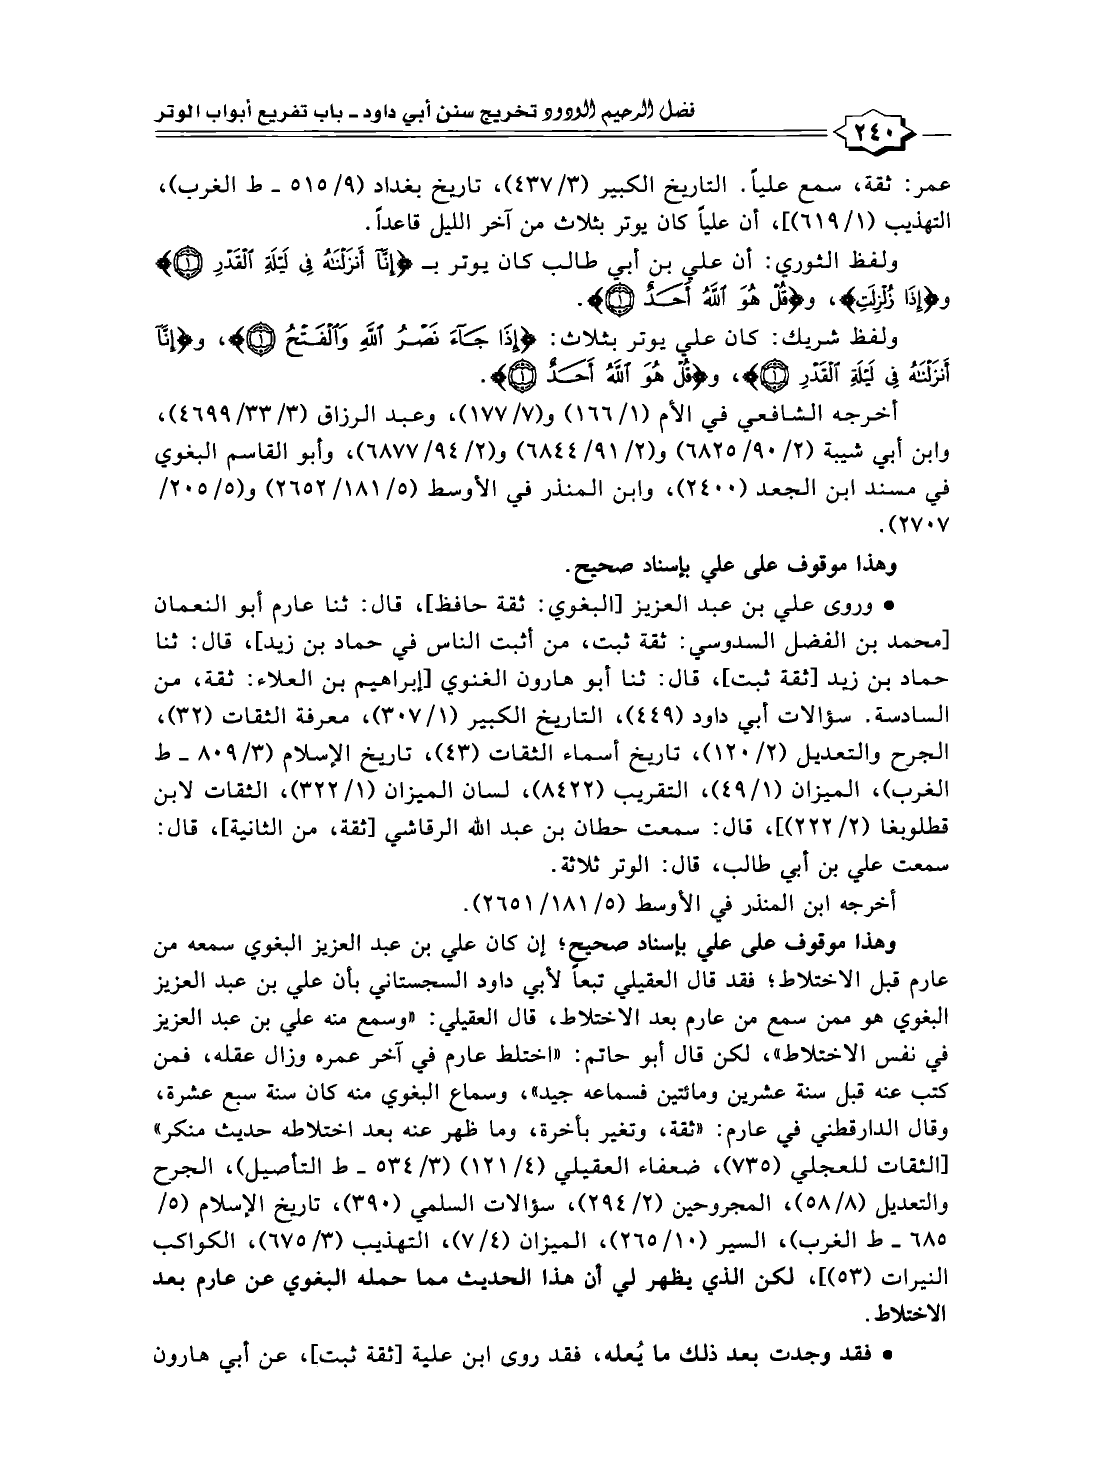 فضل الرحيم الودود تخريج سنن أبي داود ـ باب تفريع أبواب الوتر
٢٤٠
عمر: ثقة، سمع علياً. التاريخ الكبير (٣/ ٤٣٧)، تاريخ بغداد (٩/ ٥١٥ ـ ط الغرب)،
التهذيب (١/ ٦١٩)]، أن علياً كان يوتر بثلاث من آخر الليل قاعداً.
ولفظ الثوري: أن علي بن أبي طالب كان يوتر بـ ﴿إِنَّآ أَنزَلْنَٰهُ فِى لَيْلَةِ ٱلْقَدْرِ ۝١﴾
و﴿إِذَا زُلْزِلَتِ﴾، و﴿قُلْ هُوَ ٱللَّهُ أَحَدٌ ۝١﴾.
ولفظ شريك: كان علي يوتر بثلاث: ﴿إِذَا جَآءَ نَصْرُ ٱللَّهِ وَٱلْفَتْحُ ۝١﴾، و﴿إِنَّآ
أَنزَلْنَٰهُ فِى لَيْلَةِ ٱلْقَدْرِ ۝١﴾، و﴿قُلْ هُوَ ٱللَّهُ أَحَدٌ ۝١﴾.
أخرجه الشافعي في الأم (١/ ١٦٦) و(٧/ ١٧٧)، وعبد الرزاق (٣/ ٣٣/ ٤٦٩٩)،
وابن أبي شيبة (٢/ ٩٠/ ٦٨٢٥) و(٢/ ٩١/ ٦٨٤٤) و(٢/ ٩٤/ ٦٨٧٧)، وأبو القاسم البغوي
في مسند ابن الجعد (٢٤٠٠)، وابن المنذر في الأوسط (٥/ ١٨١/ ٢٦٥٢) و(٥/ ٢٠٥/
٢٧٠٧).
وهذا موقوف على علي بإسناد صحيح.
• وروى علي بن عبد العزيز [البغوي: ثقة حافظ]، قال: ثنا عارم أبو النعمان
[محمد بن الفضل السدوسي: ثقة ثبت، من أثبت الناس في حماد بن زيد]، قال: ثنا
حماد بن زيد [ثقة ثبت]، قال: ثنا أبو هارون الغنوي [إبراهيم بن العلاء: ثقة، من
السادسة. سؤالات أبي داود (٤٤٩)، التاريخ الكبير (١/ ٣٠٧)، معرفة الثقات (٣٢)،
الجرح والتعديل (٢/ ١٢٠)، تاريخ أسماء الثقات (٤٣)، تاريخ الإسلام (٣/ ٨٠٩ ـ ط
الغرب)، الميزان (١/ ٤٩)، التقريب (٨٤٢٢)، لسان الميزان (١/ ٣٢٢)، الثقات لابن
قطلوبغا (٢/ ٢٢٢)]، قال: سمعت حطان بن عبد الله الرقاشي [ثقة، من الثانية]، قال:
سمعت علي بن أبي طالب، قال: الوتر ثلاثة.
أخرجه ابن المنذر في الأوسط (٥/ ١٨١/ ٢٦٥١).
وهذا موقوف على علي بإسناد صحيح؛ إن كان علي بن عبد العزيز البغوي سمعه من
عارم قبل الاختلاط؛ فقد قال العقيلي تبعاً لأبي داود السجستاني بأن علي بن عبد العزيز
البغوي هو ممن سمع من عارم بعد الاختلاط، قال العقيلي: «وسمع منه علي بن عبد العزيز
في نفس الاختلاط»، لكن قال أبو حاتم: «اختلط عارم في آخر عمره وزال عقله، فمن
كتب عنه قبل سنة عشرين ومائتين فسماعه جيد»، وسماع البغوي منه كان سنة سبع عشرة،
وقال الدارقطني في عارم: «ثقة، وتغير بأخرة، وما ظهر عنه بعد اختلاطه حديث منكر»
[الثقات للعجلي (٧٣٥)، ضعفاء العقيلي (٤/ ١٢١) (٣/ ٥٣٤ ـ ط التأصيل)، الجرح
والتعديل (٨/ ٥٨)، المجروحين (٢/ ٢٩٤)، سؤالات السلمي (٣٩٠)، تاريخ الإسلام (٥/
٦٨٥ ـ ط الغرب)، السير (١٠/ ٢٦٥)، الميزان (٤/ ٧)، التهذيب (٣/ ٦٧٥)، الكواكب
النيرات (٥٣)]، لكن الذي يظهر لي أن هذا الحديث مما حمله البغوي عن عارم بعد
الاختلاط.
• فقد وجدت بعد ذلك ما يُعله، فقد روى ابن علية [ثقة ثبت]، عن أبي هارون